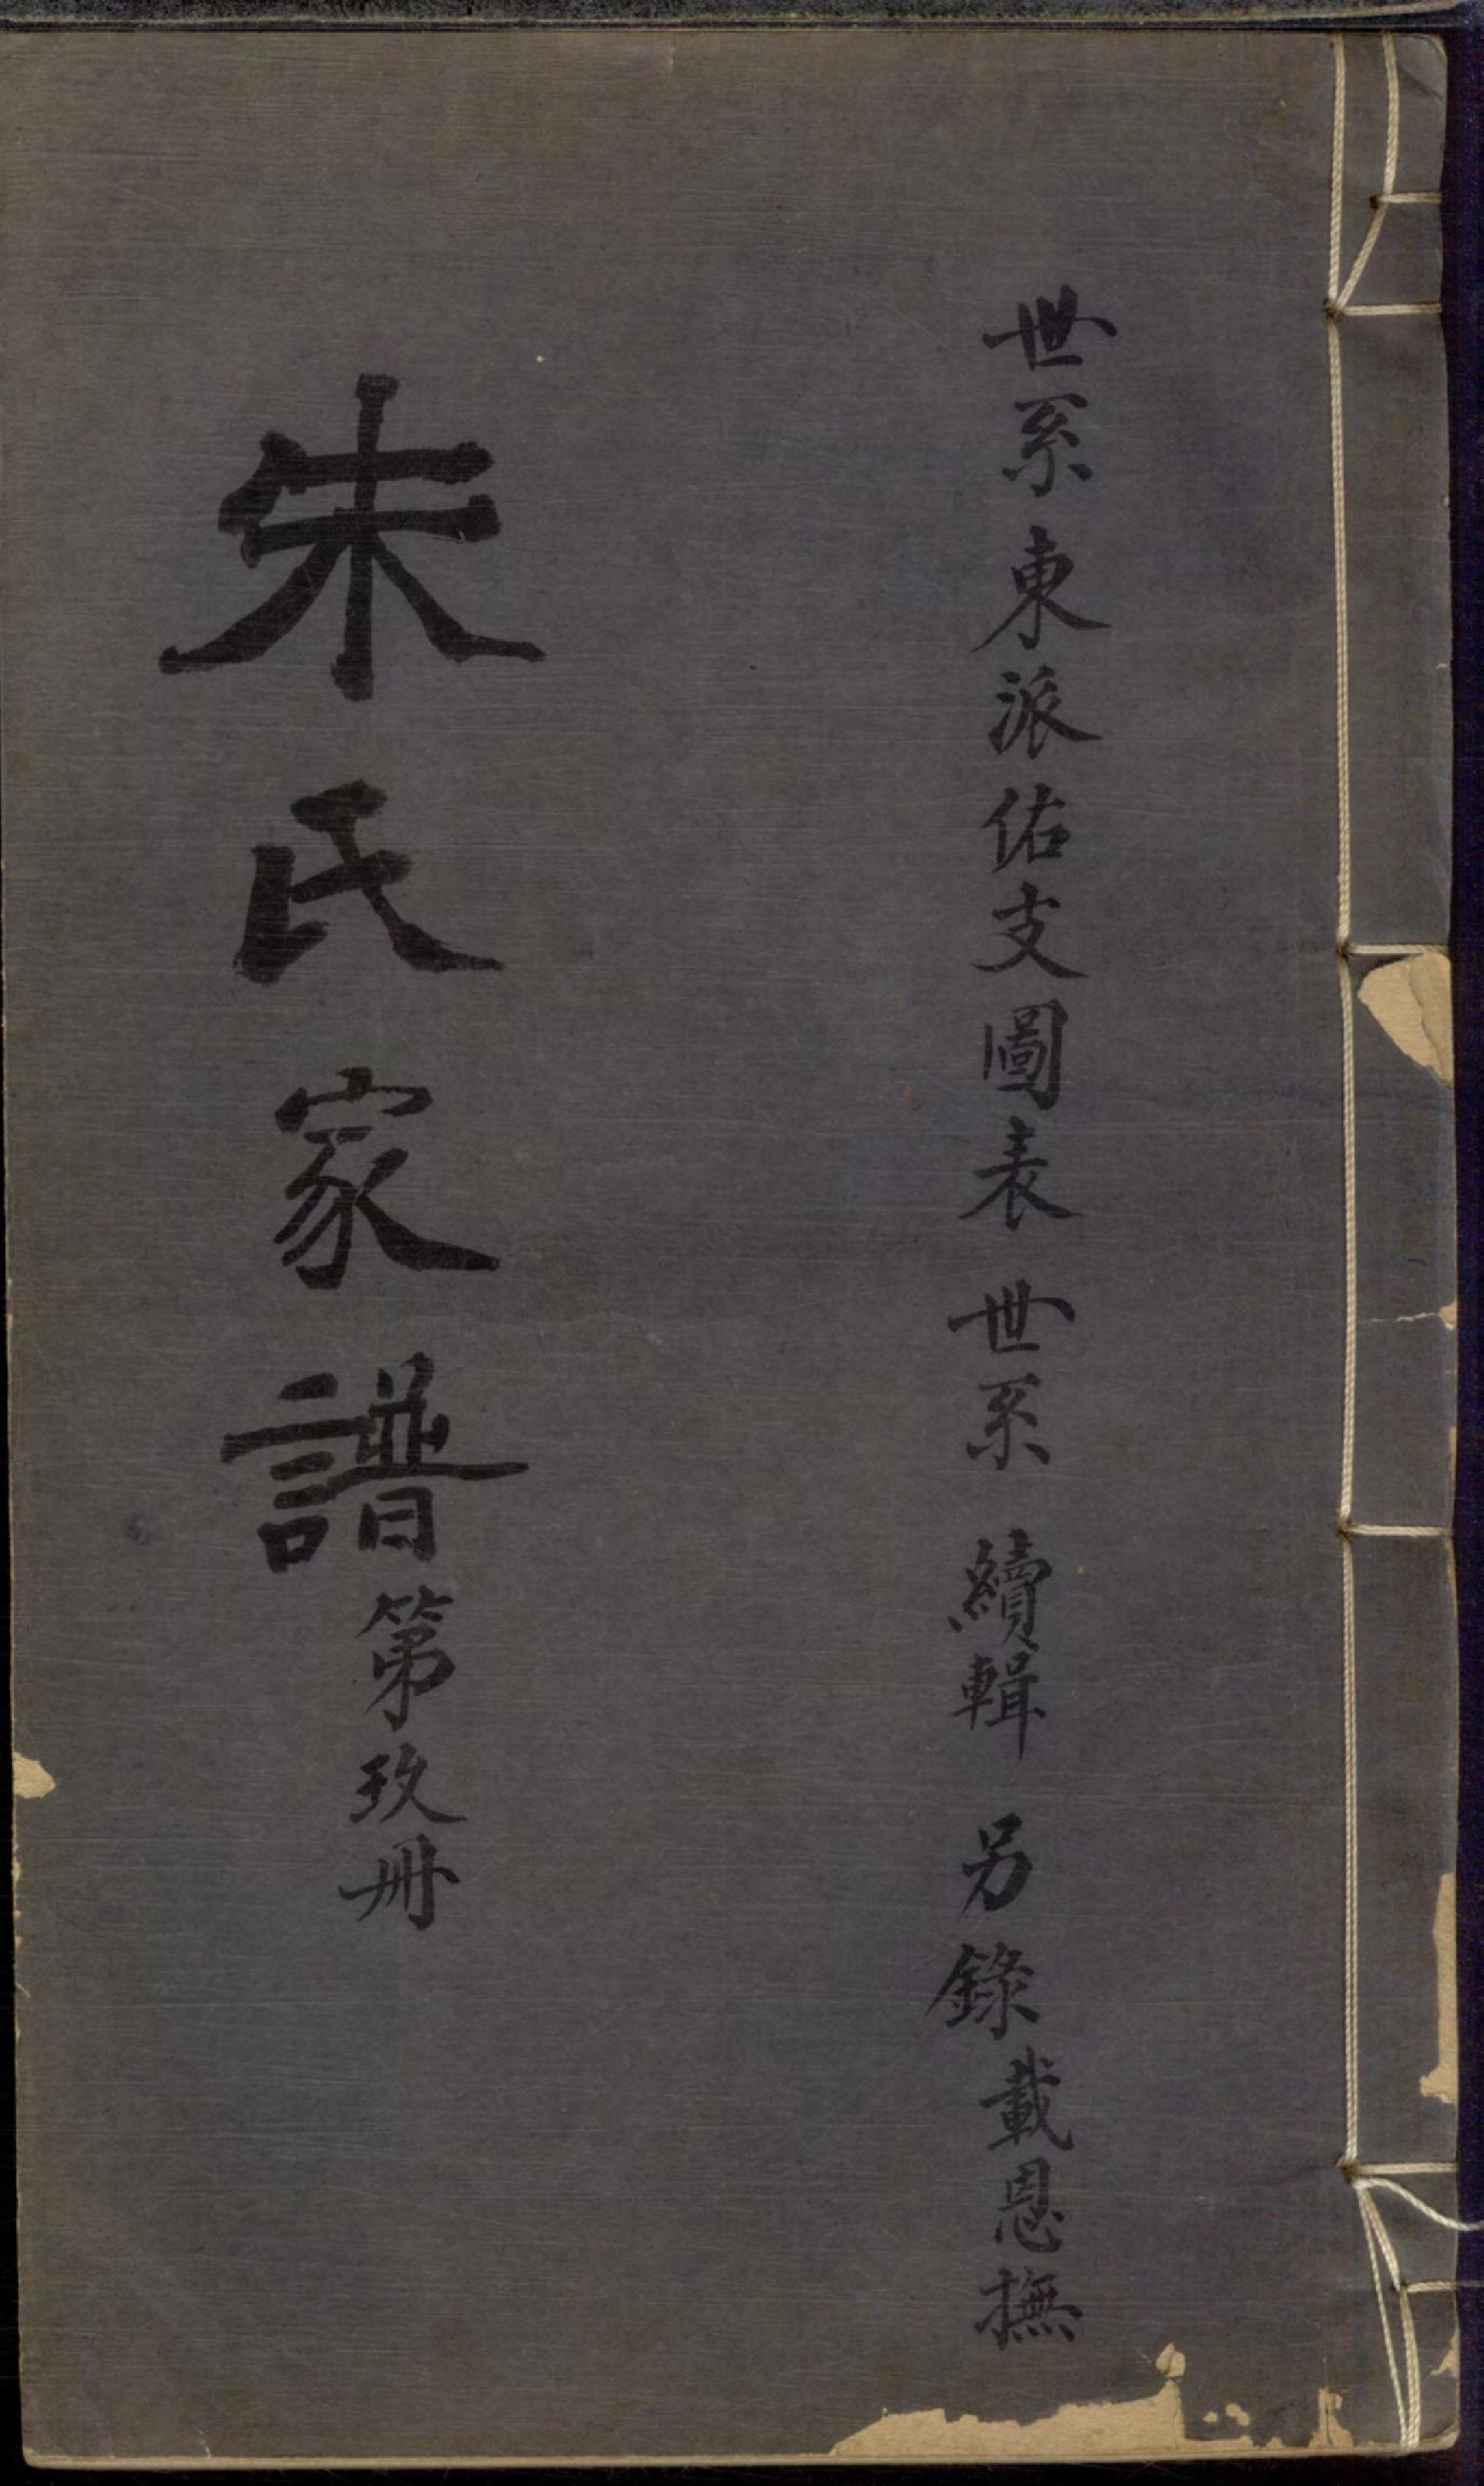 世系東派佑支圖表 世系 續輯 另錄載恩撫
朱氏家譜第玖冊